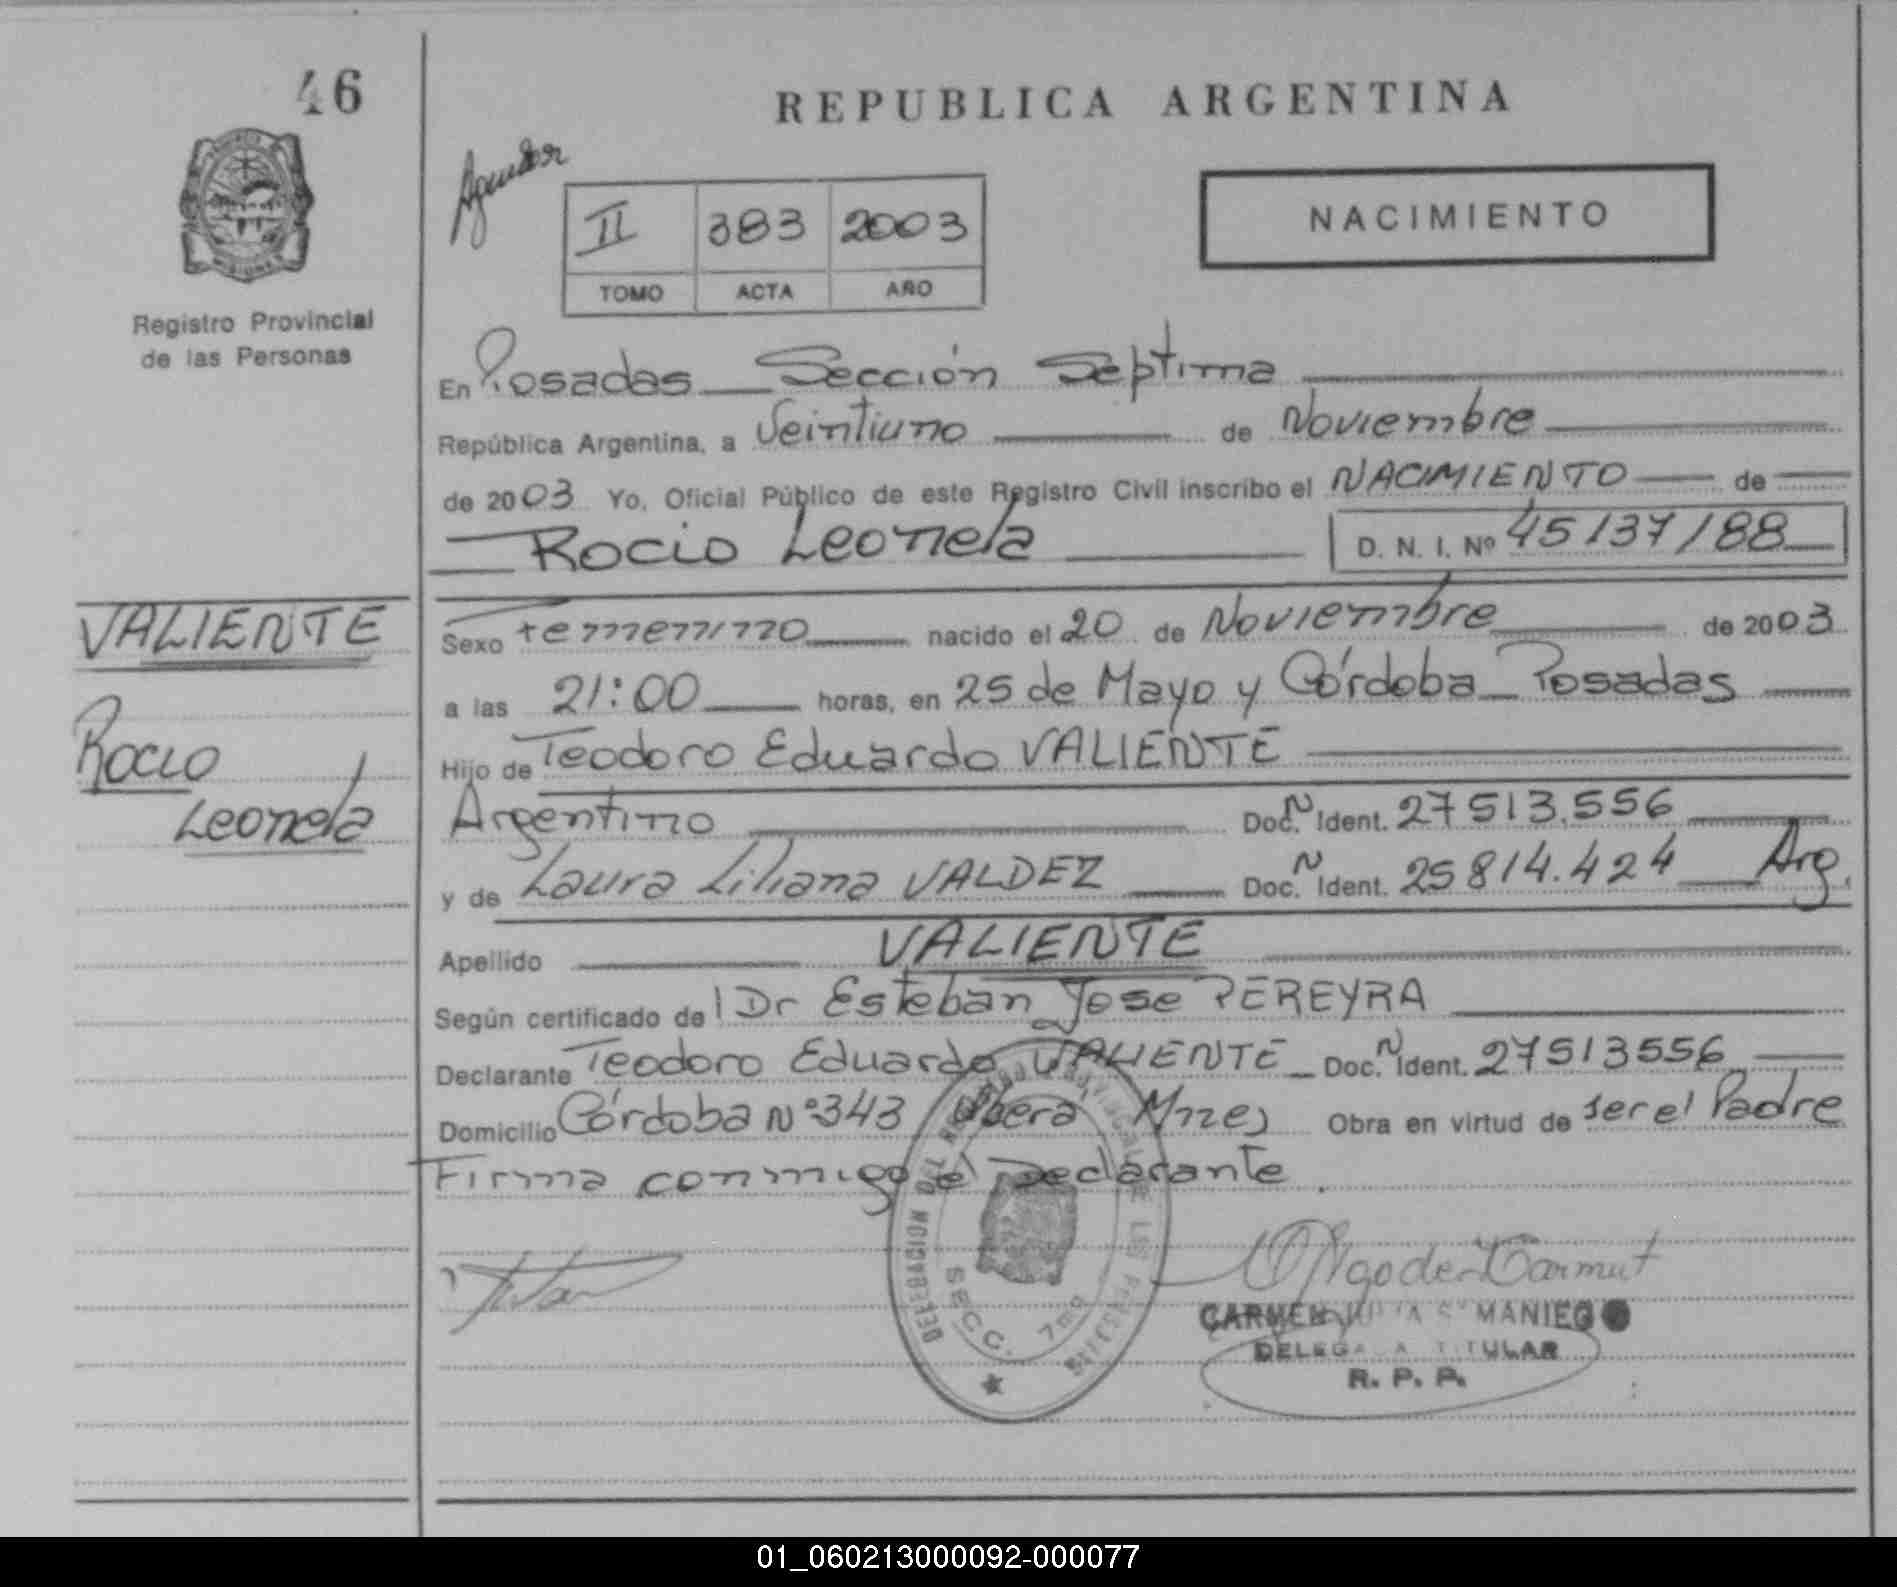 46
REPUBLICA ARGENTINA
II 383 2003
TOMO ACTA AÑO
NACIMIENTO
Registro Provincial
de las Personas
En Posadas Sección Septima
República Argentina, a Veintiuno de Noviembre
de 2003 Yo, Oficial Público de este Registro Civil inscribo el NACIMIENTO de
Rocio Leonela D. N. I. Nº 45137188
VALIENTE
Rocio
Leonela
Sexo Femenino nacido el 20 de Noviembre de 2003
a las 21:00 horas, en 25 de Mayo y Córdoba Posadas
Hijo de Teodoro Eduardo VALIENTE
Argentino Doc. N Ident. 27513.556
y de Laura Liliana VALDEZ Doc. N Ident. 25814.424 Arg.
Apellido VALIENTE
Según certificado del Dr Esteban Jose PEREYRA
Declarante Teodoro Eduardo VALIENTE Doc. N Ident. 27513556
Domicilio Córdoba Nº 343 Obera Mnes Obra en virtud de ser el Padre
Firma conmigo el Declarante
SECC. 7ma
CARMEN MANIEGO
TITULAR
R. P. P.
01_060213000092-000077